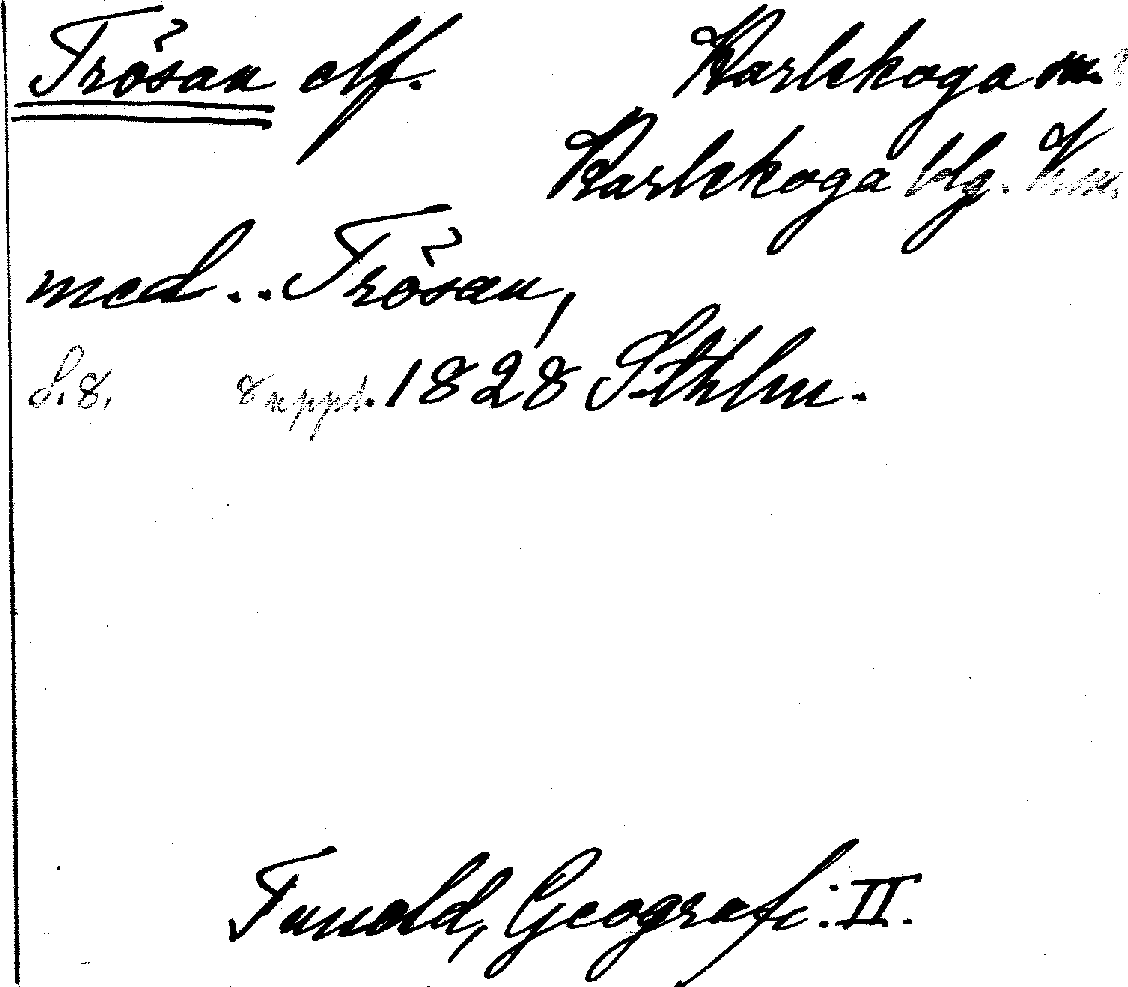 Trösan elf. Karlskoga sn.
Karlskoga blg. Vrm.
med .. Trösan,
S. 8. 8 uppl. 1828 Sthlm.
Tuneld, Geografi. II.